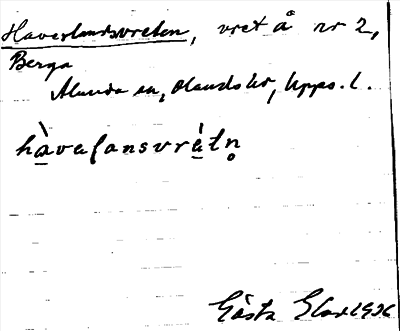 Haverlandsvreten, vret å nr 2,
Berga
Alunda sn, Olands hd, Upps. l.
hàvaḷansvrètṇ
Gösta 1936